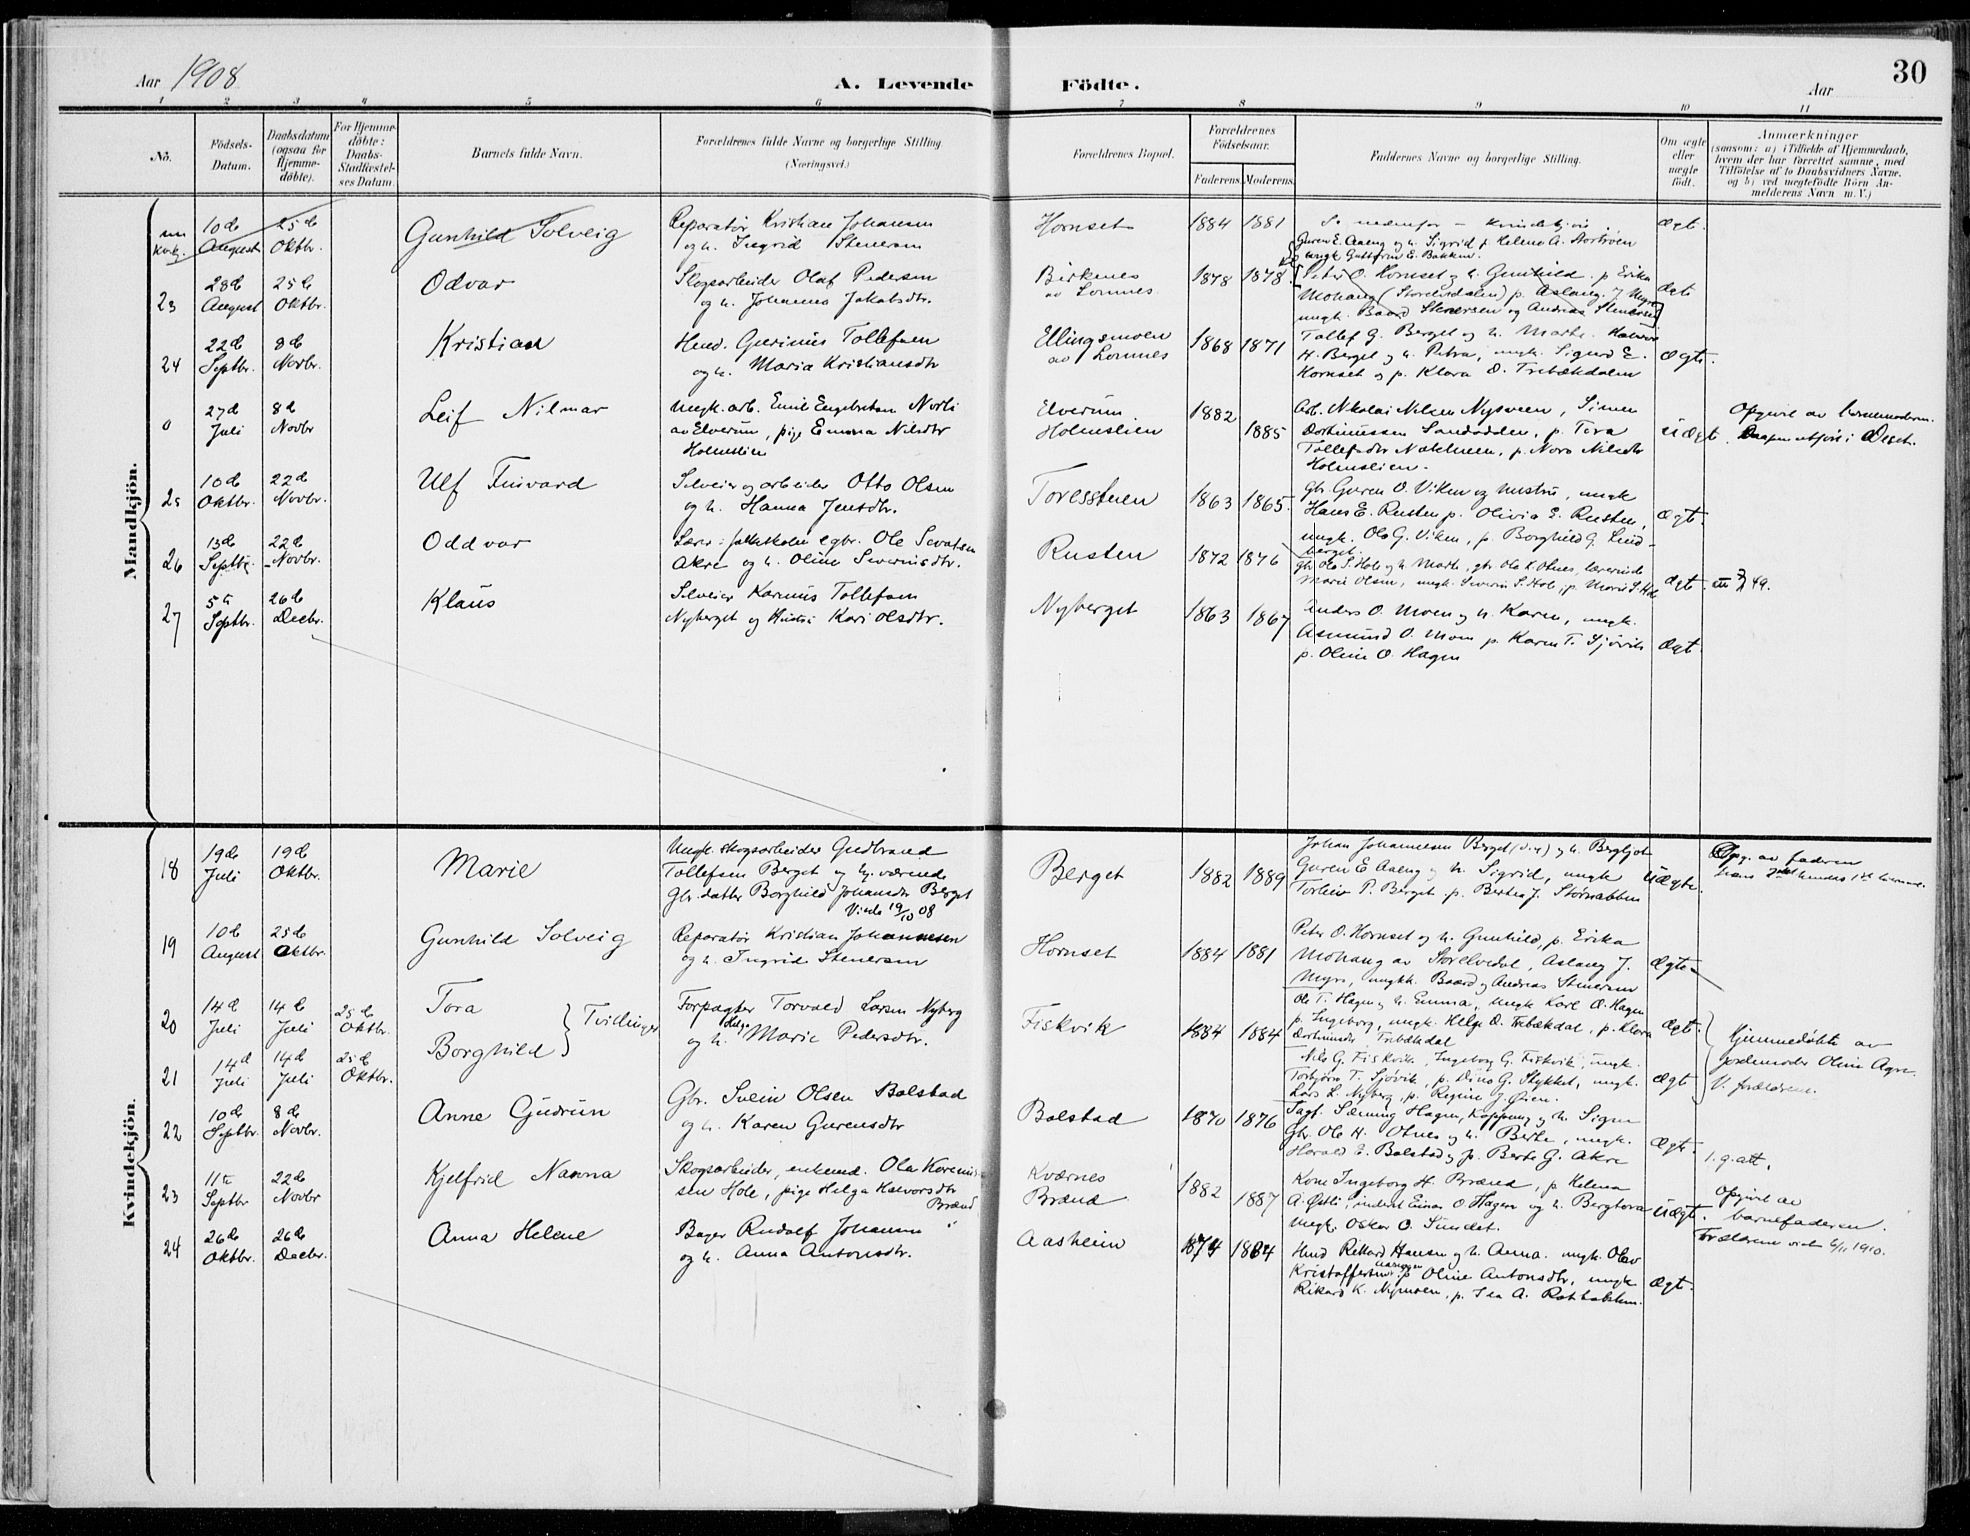 Aar 1908.
A. Levende Födte.
Aar
30
1 2 3 4 5 6 7 8 9 10 11
Nô.
Födsels-Datum.
Daabsdatum (ogsaa för Hjemme-döbte).
For Hjemme-döbte: Daabs-Stadfæstel-ses Datum.
Barnets fulde Navn.
Forældrenes fulde Navne og borgerlige Stilling (Næringsvei.)
Forældrenes Bopæl.
Forældrenes Födselsaar.
Faderens. Moderens.
Faddernes Navne og borgerlige Stilling.
Om ægte eller uægte födt.
Anmærkninger
(saasom: a) i Tilfælde af Hjemmedaab, hvem der har forrettet samme, med Tilföielse af to Daabsvidners Navne. og b) ved uægtefödte Börn An-melderens Navn m.V.)
Mandkjön.
10de August 25de Oktbr. Gunhild Solveig
Reparatør Kristian Johansen
og h. Ingrid Stenersen
Hornset 1884 1881
Se nedenfor – kvindekjön
ægte
Guren E. Aaeng og h. Sigrid p. Helene A. Storbröen
ungk. Guttorm E. Bakken.
23 28de August 25de Oktbr. Odvar
Skogsarbeider Olaf Pedersen
og h. Johanna Jakobsdtr.
Birkenes
av Lomnes.
1878 1878.
Peter O. Hornset og h. Gunhild. p. Erika
Mohaug (Storelvdalen) p. Aslaug J. Myre
ungk. Baard Stenersen og Andreas Stenersen
ægte
24 22de Septbr. 8de Novbr. Kristian
Huud. Gurinius Tollefsen
og h. Maria Kristiansdtr
Ellingsmoen
av Lomnes
1868 1871
Tollef G. Berget og h. Marthe. Halvor
H. Berget og h. Petra, ungk. Sigurd E.
Hornset og p. Klara O. Trebækdalen
ægte.
0 27de Juli 8de Novbr Leif Hilmar
Ungk. arb. Emil Engebretsen Norli
av Elverum, pige Emma Nilsdtr
Holmslien
Elverum.
Holmslien
1882
1885
Arb. Nikolai Nilsen Nysveen, Simen
Dortinussen Sandodden, p. Tora
Tollefsdtr Nakkmoen, p. Nora Nilsdtr
Holmslien.
Uægt.
Opgivet av barnemoderen.
Daapen utfört i Deset.
25 10de Oktbr. 22de Novbr. Ulf Finvard
Selveier og arbeider Otto Olsen
og h. Hanna Jensdtr.
Toresstuen
1863 1865.
gbr. Guren O. Viken og hustru, ungk
Hans E. Rusten p. Olivia E. Rusten,
ungk. Ole G. Viken, p. Borghild G. Lind-
berget.
ægte.
26 13de Septbr. 22de Novbr. Oddvar
Lærer i folkeskolen egbr. Ole Sevatsen
Akre og h. Oline Severinsdtr.
Rusten
1872 1876
gbr. Ole S. Hole og h. Marth., gbr. Ole K. Otnes, lærerinde
Marie Olsen, ungk. Severin S. Hole, p. Marie S. Hole
ægt.
27 5te Septbr. 26de Decbr. Klaus
Selveier Karinus Tollefsen
Nyberget og Hustru Kari Olsdtr.
Nyberget
1863 1867
Anders O. Moen og h. Karen, ungk.
Asmund O. Moen p. Karen T. Sjövik
p. Oline O. Hagen
ægt.
Kvindekjön.
18 19de Juli 19de Oktbr. Marie
Ungk. skogsarbeider Gudbrand
Tollefsen Berget og hj. værende
Gbr.datter Borghild Johansdtr Berget
Viede 19/10 08
Berget
1882 1889
Johan Johannesen Berget og h. Bergljot
Guren E. Aaeng og h. Sigrid, ungk
Torleiv P. Berget p. Berthe J. Störnabben
Uægte.
Opg. av faderen
hans 2det hendes 1ste
19 10de August 25de Oktbr. Gunhild Solveig
Reparatör Kristian Johannesen
og h. Ingrid Stenersen
Hornset 1884 1881
Peter O. Hornset og h. Gunhild, p. Erika
Mohaug av Storelvedal, Aslaug J.
Myre, ungkk. Baard og Andreas Stenersen
ægte
20 14de Juli 14de Juli 25de Oktbr. Tora } Tvillinger
Forpagter Torvald Larsen Nyberg
og h. Helga Marie Pedersdtr.
Fiskvik 1884 1884
Ole T. Hagen og h. Emma, ungk Karl O. Hagen
p. Ingeborg, ungk. Helge O. Trebækdal, p. Klara
Dortinusdtr Trebækdal
ægt.
Hjemmedöbte av
jordemoder Oline Agre
V. forældrene.
21 14de Juli 14de Juli 25de Oktbr. Borghild
Nils G. Fiskvik, Ingeborg G. Fiskvik, ungk.
Torbjörn T. Sjövik, p. Dina G. Stykket, ungk.
Lars L. Nyberg, p. Regine J. Öien.
ægt
22 10de Septbr. 8de Novbr. Anne Gudrun
Gbr. Svein Olsen Bolstad
og h. Karen Gurensdtr
Bolstad 1870 1876
Sagf. Sæming Hagen, Koppang og h. Signe
Gbr. Ole H. Otnes og h. Berte, ungk.
Harald E. Bolstad og p. Berte G. Akre
ægt.
1. g. att.
23 11te Septbr 22de Novbr Kjelfrid Nanna
Skogsarbeider, enkemd. Ola Korenius-
sen Hole, pige Helga Halvorsdtr
Brænd
Kværnes
Brænd.
1882
1887
Kone Ingeborg H. Brænd, p. Helena
A. Östli, inderst Einar O. Hagen og h. Bergtora
ungk. Oskar O. Sundet.
Uægt.
Opgivet av
barnefaderen.
Forældrene viet 6/11 1910.
24 26de Oktbr. 26de Decbr. Anna Helene
Bager Rudolf Johansen
og h. Anna Antonsdtr.
Aasheim 1874 1884
Hmd Rikard Hansen og h. Anna. ungk. Olav
Kristoffersen p. Oline Antonsdtr, ungk
Rikard K. Nymoen, p. Ida A.
ægt.